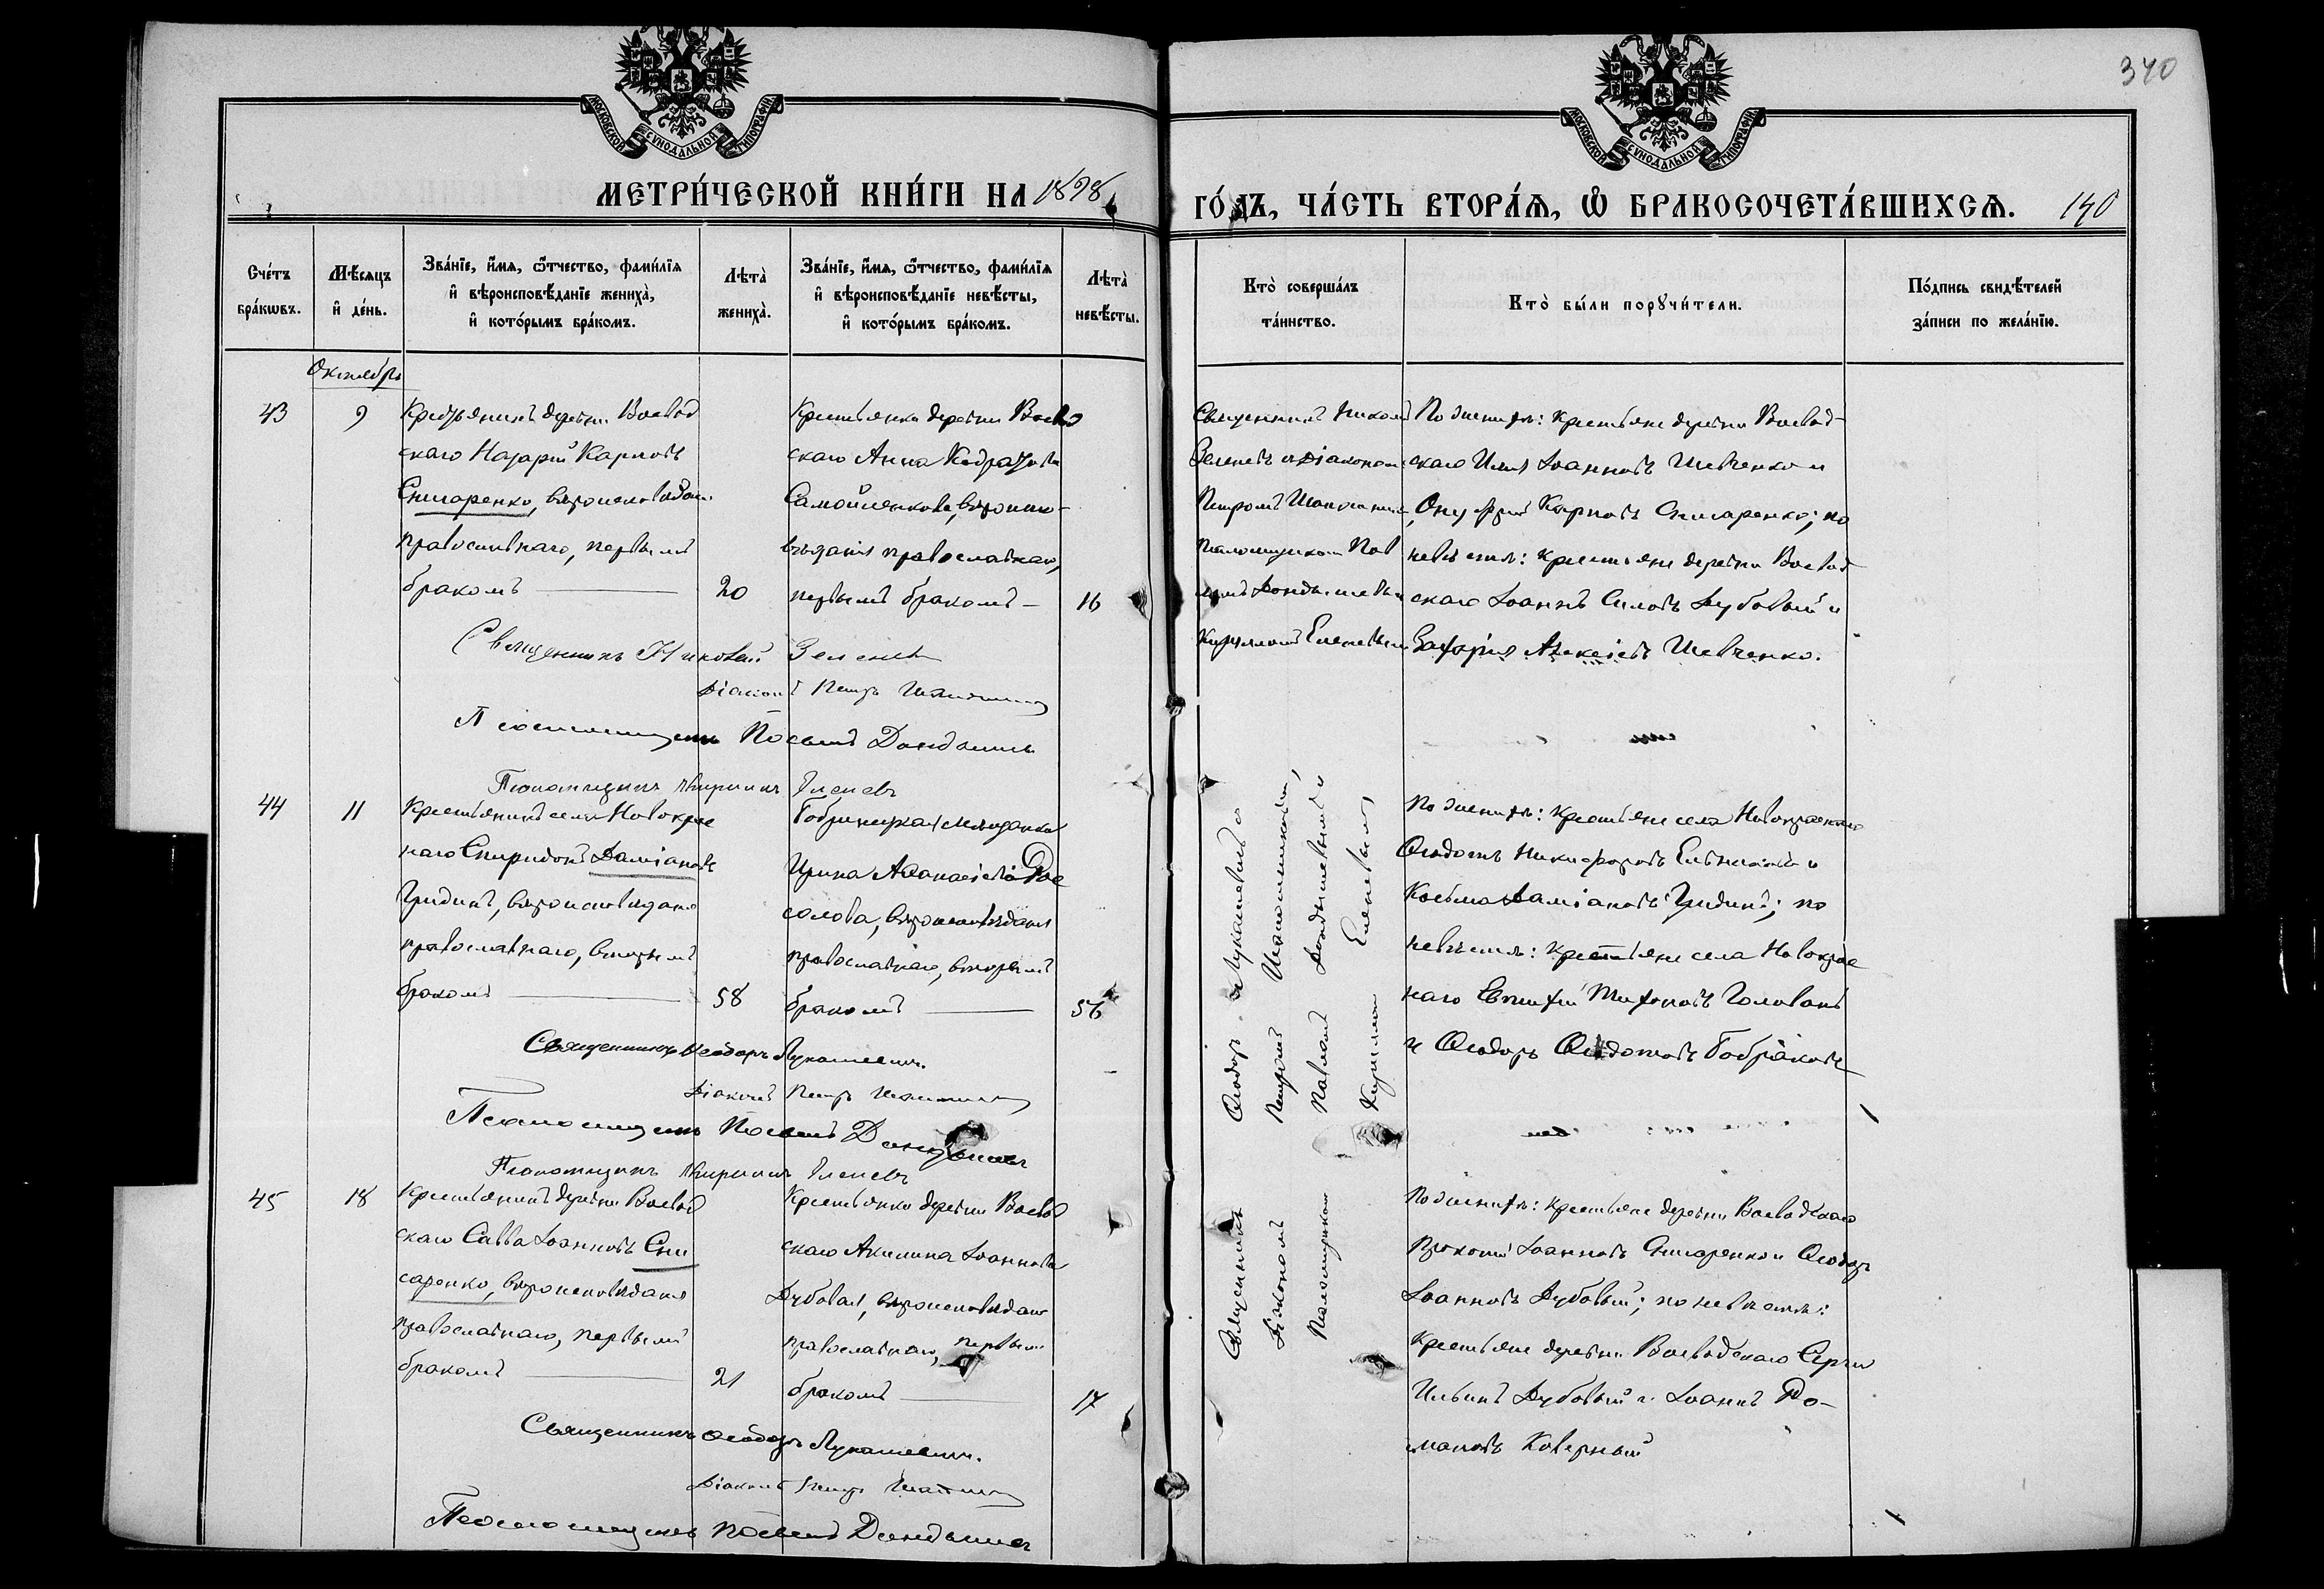 340
МОСКОВСКОЙ СУНОДАЛЬНОЙ ТИПОГРАФІИ
МОСКОВСКОЙ СУНОДАЛЬНОЙ ТИПОГРАФІИ
МЕТРИ́ЧЕСКОЙ КНИ́ГИ НА 1898
ГО́ДЪ, ЧА́СТЬ ВТОРА́Ѧ, Ѡ БРАКОСОЧЕТА́ВШИХСѦ. 140
Сче́тъ бра́кѡвъ.
Мѣ́сяцъ и҆ де́нь.
Зва́нїе, и҆́мѧ, ѻ҆́тчество, фами́лїѧ
и҆ вѣроисповѣ́данїе жениха̀,
и҆ кото́рымъ бра́комъ.
Лѣта̀ жениха̀.
Зва́нїе, и҆́мѧ, ѻ҆́тчество, фами́лїѧ
и҆ вѣроисповѣ́данїе невѣ́сты,
и҆ кото́рымъ бра́комъ.
Лѣта̀ невѣ́сты.
Кто̀ соверша́лъ та́инство.
Кто̀ бы́ли порꙋчи́тели.
По́дпись свидѣ́телей за́писи по жела́нїю.
Октябрь
43
9
Крестьянинъ деревни Воевод
скаго Назарій Карповъ
Снисаренко, вѣроисповѣдан.
православнаго, первымъ
бракомъ
20
Крестьянка деревни Воевод
скаго Анна
Самойленкова, вѣроиспо-
вѣданія православнаго,
первымъ бракомъ —
16
Священникъ Николай
Зеленевъ и Діаконом
Петромъ
Псаломщиком Пав
ломъ Дондышевым
Кирилломъ Еленевым
По женихѣ: крестьяне деревни Воевод-
скаго Илія Іоанновъ Шевченко и
Онуфрій Карповъ Снисаренко; по
невѣстѣ: крестьяне деревни Воевод
скаго Іоаннъ Силовъ Дубовый и
Захарія Алексіевъ Шевченко.
Священникъ Николай Зеленевъ
Діаконъ Петръ
Псаломщикъ Павелъ Дондышевъ
Псаломщикъ Кириллъ Еленевъ
44
11
Крестьянинъ села Новокрас
наго Спиридонъ Даміановъ
Гридинъ, вѣроисповѣданія
православнаго, вторымъ
бракомъ
58
Бобринецкая мѣщанка
Ирина Аѳанасіева Рос
солова, вѣроисповѣданія
православнаго, вторымъ
бракомъ
56
Священникъ Ѳеодоръ Лукашевичъ и
Діаконъ Петръ
Псаломщиком Павломъ Дондышевымъ и
Кирилломъ Еленевымъ
По женихѣ: крестьяне села Новокраснаго
Ѳедотъ Никифоровъ и
Косьма Даміановъ Гридинъ; по
невѣстѣ: крестьяне села Новокрас
наго Евтихій Тихоновъ Голованъ
и Ѳеодоръ Ѳедотовъ
Священникъ Ѳеодоръ Лукашевичъ.
Діаконъ Петръ
Псаломщикъ Павелъ Дондышевъ
Псаломщикъ Кириллъ Еленевъ
45
18
Крестьянинъ деревни Воевод
скаго Савва Іоанновъ Сни
саренко, вѣроисповѣданія
православнаго, первымъ
бракомъ
21
Крестьянка деревни Воевод
скаго Акилина Іоаннова
Дубовая, вѣроисповѣданія
православнаго, первымъ
бракомъ
17
По женихѣ: крестьяне деревни Воеводскаго
Прокопій Іоанновъ Снисаренко и Ѳеодоръ
Іоанновъ Дубовый; по невѣстѣ:
крестьяне деревни Воеводскаго Сергій
Ильинъ Дубовый и Іоаннъ Ро-
мановъ Коверный
Священникъ Ѳеодоръ Лукашевичъ.
Діаконъ Петръ
Псаломщикъ Павелъ Дондышевъ